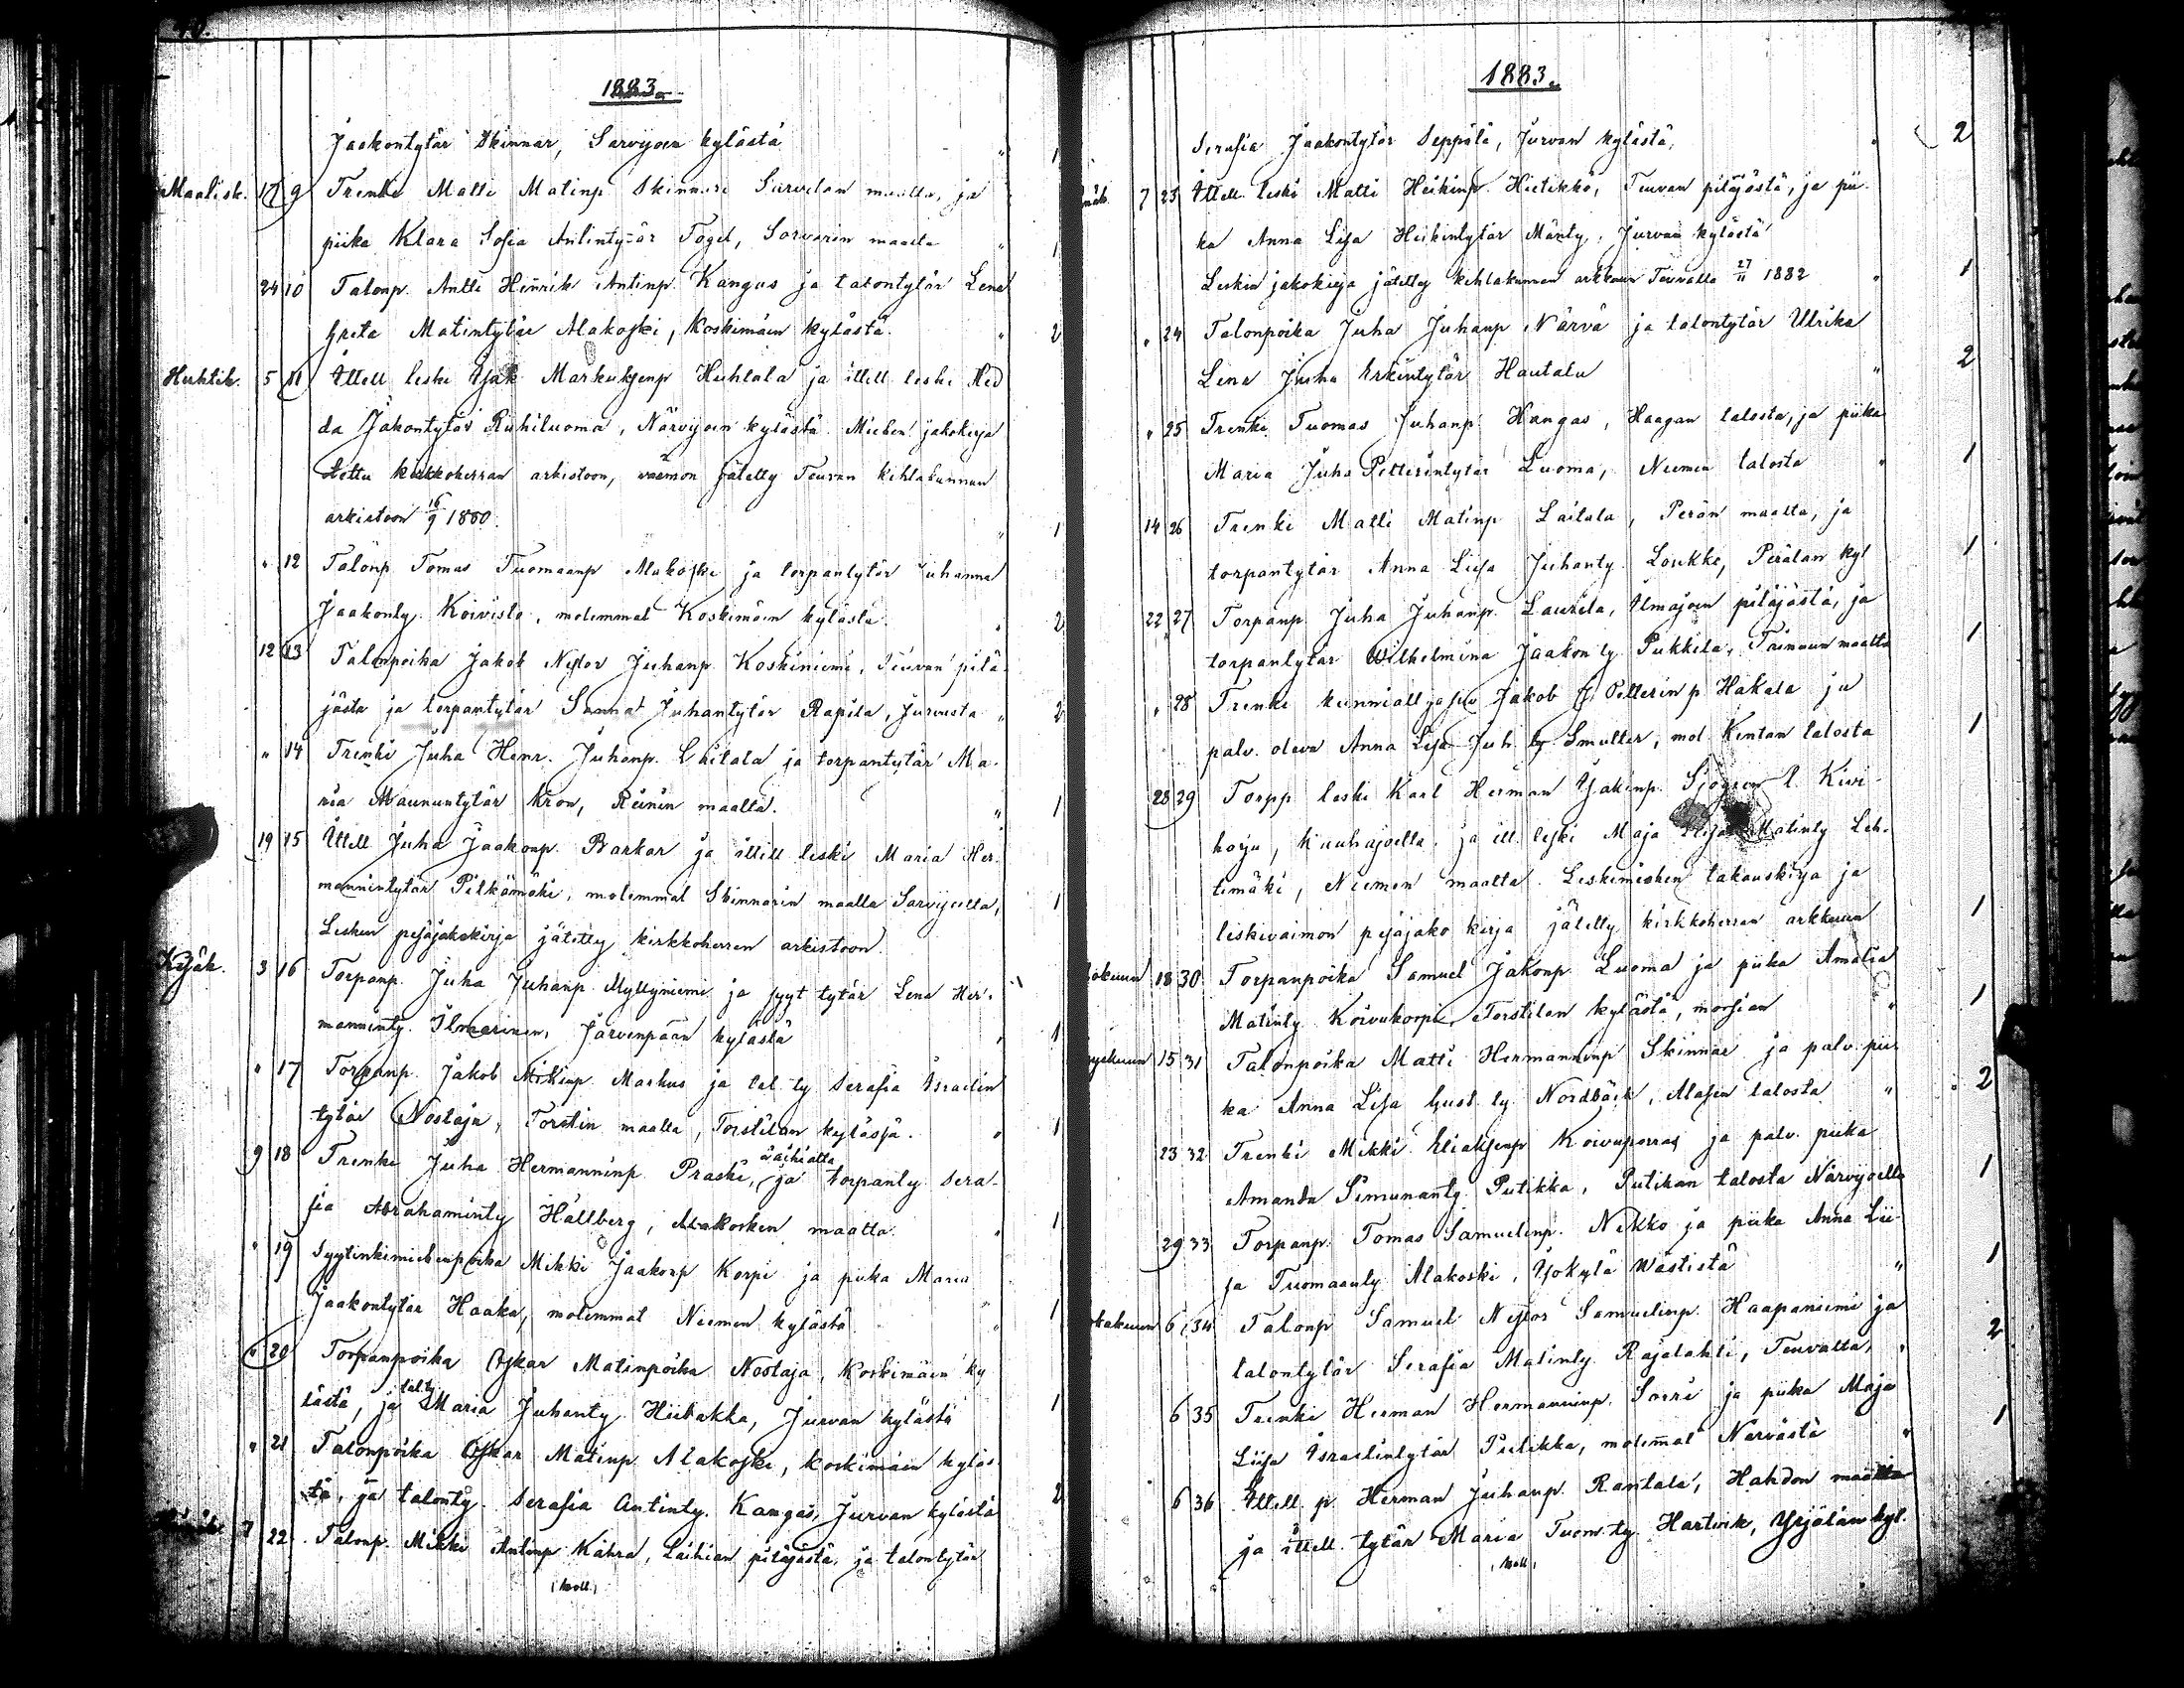 1883.
Jaakontytär Skinnar, Sarvijoen kylästä " 1
Maalisk. 17 9 Trenki Matti Matinp. Skinnari Sarvelan maalta, ja
piika Klara Sofia Antintytär Fogel, Sorvarin maalta " 1
24 10 Talonp. Antti Hinrik Antinp. Kangas ja talontytär Lena
Greta Matintytär Alakoski, Koskimäen kylästä. " 2
Huhtik. 5 11 Ittell. leski Isak Markuksenp Huhtala ja ittell. leski Hed
da Jakontytär Ruhiluoma, Närvijoen kylästä. Miehen jakokirja
tettu kirkkoherran arkistoon, vaimon jätetty Teuvan kihlakunnan
arkistoon 16/9 1880. " 1
" 12 Talonp. Tomas Tuomaanp Alakoski ja torpantytär Juhanna
Jaakonty. Koivisto, molemmat Koskimäen kylästä. " 2
12 13 Talonpoika Jakob Nestor Juhanp. Koskiniemi, Teuvan pitä-
jästä ja torpantytär Sanna Juhantytär Rapila, Jurvasta " 2
" 14 Trenki Juha Henr. Juhanp. Laitala ja torpantytär Ma-
ria Maununtytär Kron, Reinin maalta. " 1
19 15 Ittell Juha Jaakonp. Barkar ja ittell leski Maria Her-
mannintytär Pitkämäki, molemmat Skinnarin maalla Sarvijoella, 1
Lesken pesäjakokirja jätetty kirkkoherran arkistoon.
Kesäk. 3 16 Torpanp. Juha Juhanp. Myllyniemi ja syyt. tytär Lena Her-
manninty. Ilmarinen, Järvenpään kylästä " 1
" 17 Torpanp. Jakob Mikinp. Markus ja tal. ty Serafia Israelin
tytär Nostaja, Torstin maalta, Torstilan kylässä. " 1
9 18 Trenki Juha Hermanninp. Praski, Laihialta ja torpanty. Sera-
fia Abrahaminty Hallberg, Alakosken maalta. " 1
" 19 Syytinkimiehenpoika Mikki Jaakonp Korpi ja piika Maria
Jaakontytär Haaka, molemmat Niemen kylästä " 1
20 Torpanpoika Oskar Matinpoika Nostaja, Koskimäen ky
lästä, ja tal.ty Maria Juhanty. Hiibakka, Jurvan kylästä 1
" 21 Talonpoika Oskar Matinp. Alakoski, Koskimäen kyläs-
tä, ja talonty. Serafia Antinty. Kangas, Jurvan kylästä 2
7 22 Talonp. Mikki Antinp Kährä, Laihian pitäjästä, ja talontytär
1883.
Serafia Jaakontytär Seppälä, Jurvan kylästä, " 2
7 23 Ittell. leski Matti Heikinp. Hietikko, Teuvan pitäjästä, ja pii-
ka Anna Lisa Heikintytär Mänty, Jurvan kylästä
Leskin jakokirja jätetty kihlakunnan arkkuun Teuvalla 27/11 1882 " 1
" 24 Talonpoika Juha Juhanp Närvä ja talontytär Ulrika
Lena Juha Erkintytär Hautala " 2
" 25 Trenki Tuomas Juhanp. Hangas, Haagan talosta, ja piika
Maria Juha Petterintytär Luoma, Niemen talosta " 1
14 26 Trenki Matti Matinp Laitala, Perän maalta, ja
torpantytär Anna Liisa Juhanty Loukko, Perälän kyl 1
22 27 Torpanp. Juha Juhanp. Laurila, Ilmajoen pitäjästä, ja
torpantytär Wilhelmina Jaakon ty Pukkila, maalta 1
" 28 Trenki Jakob Petterinp Hakala ja
palv. oleva Anna Lisa Juh. ty. Smulter, mol. Kentan talosta 1
28 29 Torpp leski Karl Herman Isakinp. Sjögren l. Kivi-
harju, Kauhajoelta, ja itt. leski Maja Matinty Leh-
timäki, Niemen maalta. Leskimiehen takauskirja ja
leskivaimon pesäjako kirja jätetty kirkkoherran arkkuun 1
18 30 Torpanpoika Samuel Jakonp. Luoma ja piika Amalia
Matinty. Koivukorpi, Torstilan kylästä, morsian " 1
15 31 Talonpoika Matti Hermanninp Skinnar ja palv. pii-
ka Anna Lisa Gust. ty. Nordbäck, Alasen talosta " 2
23 32 Trenki Mikki Eliaksenp Koivuporras ja palv. piika
Amanda Simunanty. Putikka, Putikan talosta Närvijoella 1
29 33 Torpanp. Tomas Samuelinp. Nikko ja piika Anna Lii-
sa Tuomaanty Alakoski, Yökylä Wästistä " 1
6 34 Talonp Samuel Nestor Samuelinp. Haapaniemi ja
talontytär Serafia Matinty. Rajalahti, Teuvalta, " 2
6 35 Trenki Herman Hermanninp. Sorri ja piika Maja
Liisa Israelintytär Putikka, molemmat Närvästä " 1
6 36 Ittell. p. Herman Juhanp. Rantala, Hahdon maalta
ja ittell. tytär Maria Tuom. ty. Hartvik, Yrjälän kyl.